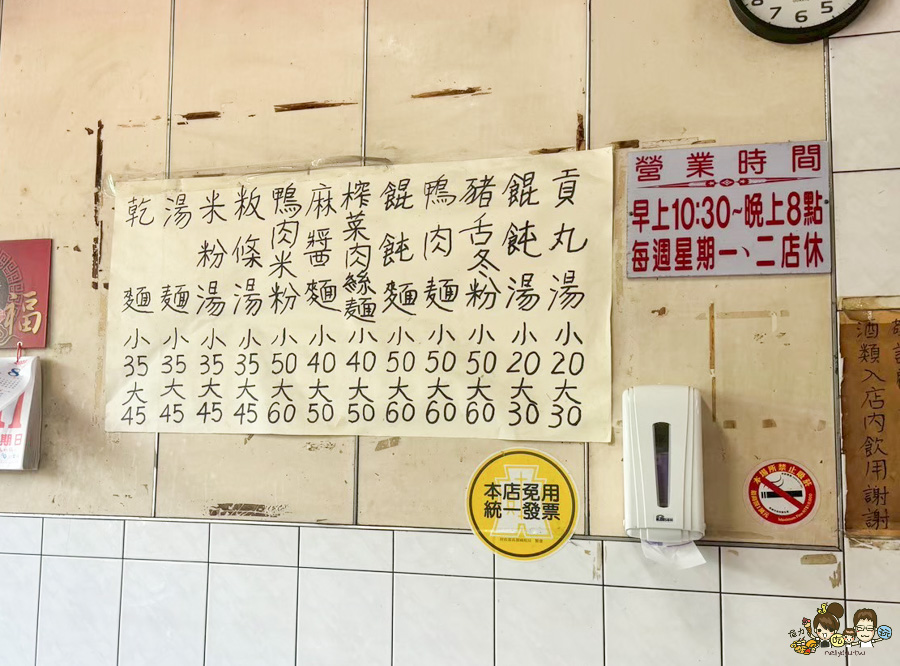 乾麵 小35 大45
湯麵 小35 大45
米粉湯 小35 大45
粄條湯 小35 大45
鴨肉米粉 小50 大60
麻醬麵 小40 大50
榨菜肉絲麵 小40 大50
餛飩麵 小50 大60
鴨肉麵 小50 大60
豬舌冬粉 小50 大60
餛飩湯 小20 大30
貢丸湯 小20 大30
營業時間
早上10:30~晚上8點
每週星期一、二店休
福
8
11
期日
本店免用
統一發票
本場所禁止吸菸
酒類入店內飲用謝謝
8 7 6 5